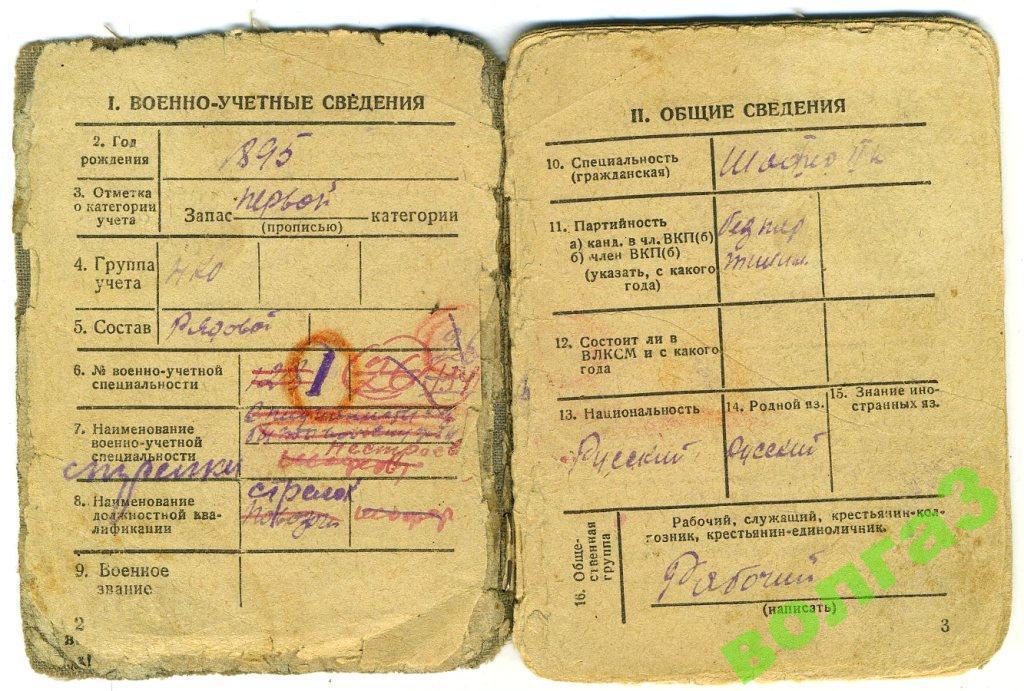 I. ВОЕННО-УЧЕТНЫЕ СВЕДЕНИЯ
2. Год
рождения
1895
3. Отметка
о категории
учета
Запас первой категории
(прописью)
4. Группа
учета
НКО
5. Состав
Рядовой
6. № военно-учетной
специальности
1
26
134
7. Наименование
военно-учетной
специальности
стрелки
8. Наименование
должностной ква-
лификации
стрелок
шофер
9. Военное
звание
2
II. ОБЩИЕ СВЕДЕНИЯ
10. Специальность
(гражданская)
11. Партийность
а) канд. в чл. ВКП(б)
б) член ВКП(б)
(указать, с какого
года)
12. Состоит ли в
ВЛКСМ и с какого
года
13. Национальность
Русский
14. Родной яз.
Русский
15. Знание ино-
странных яз.
16. Обще-
ственная
группа
Рабочий, служащий, крестьянин-кол-
хозник, крестьянин-единоличник.
Рабочий
(написать)
3
волга3